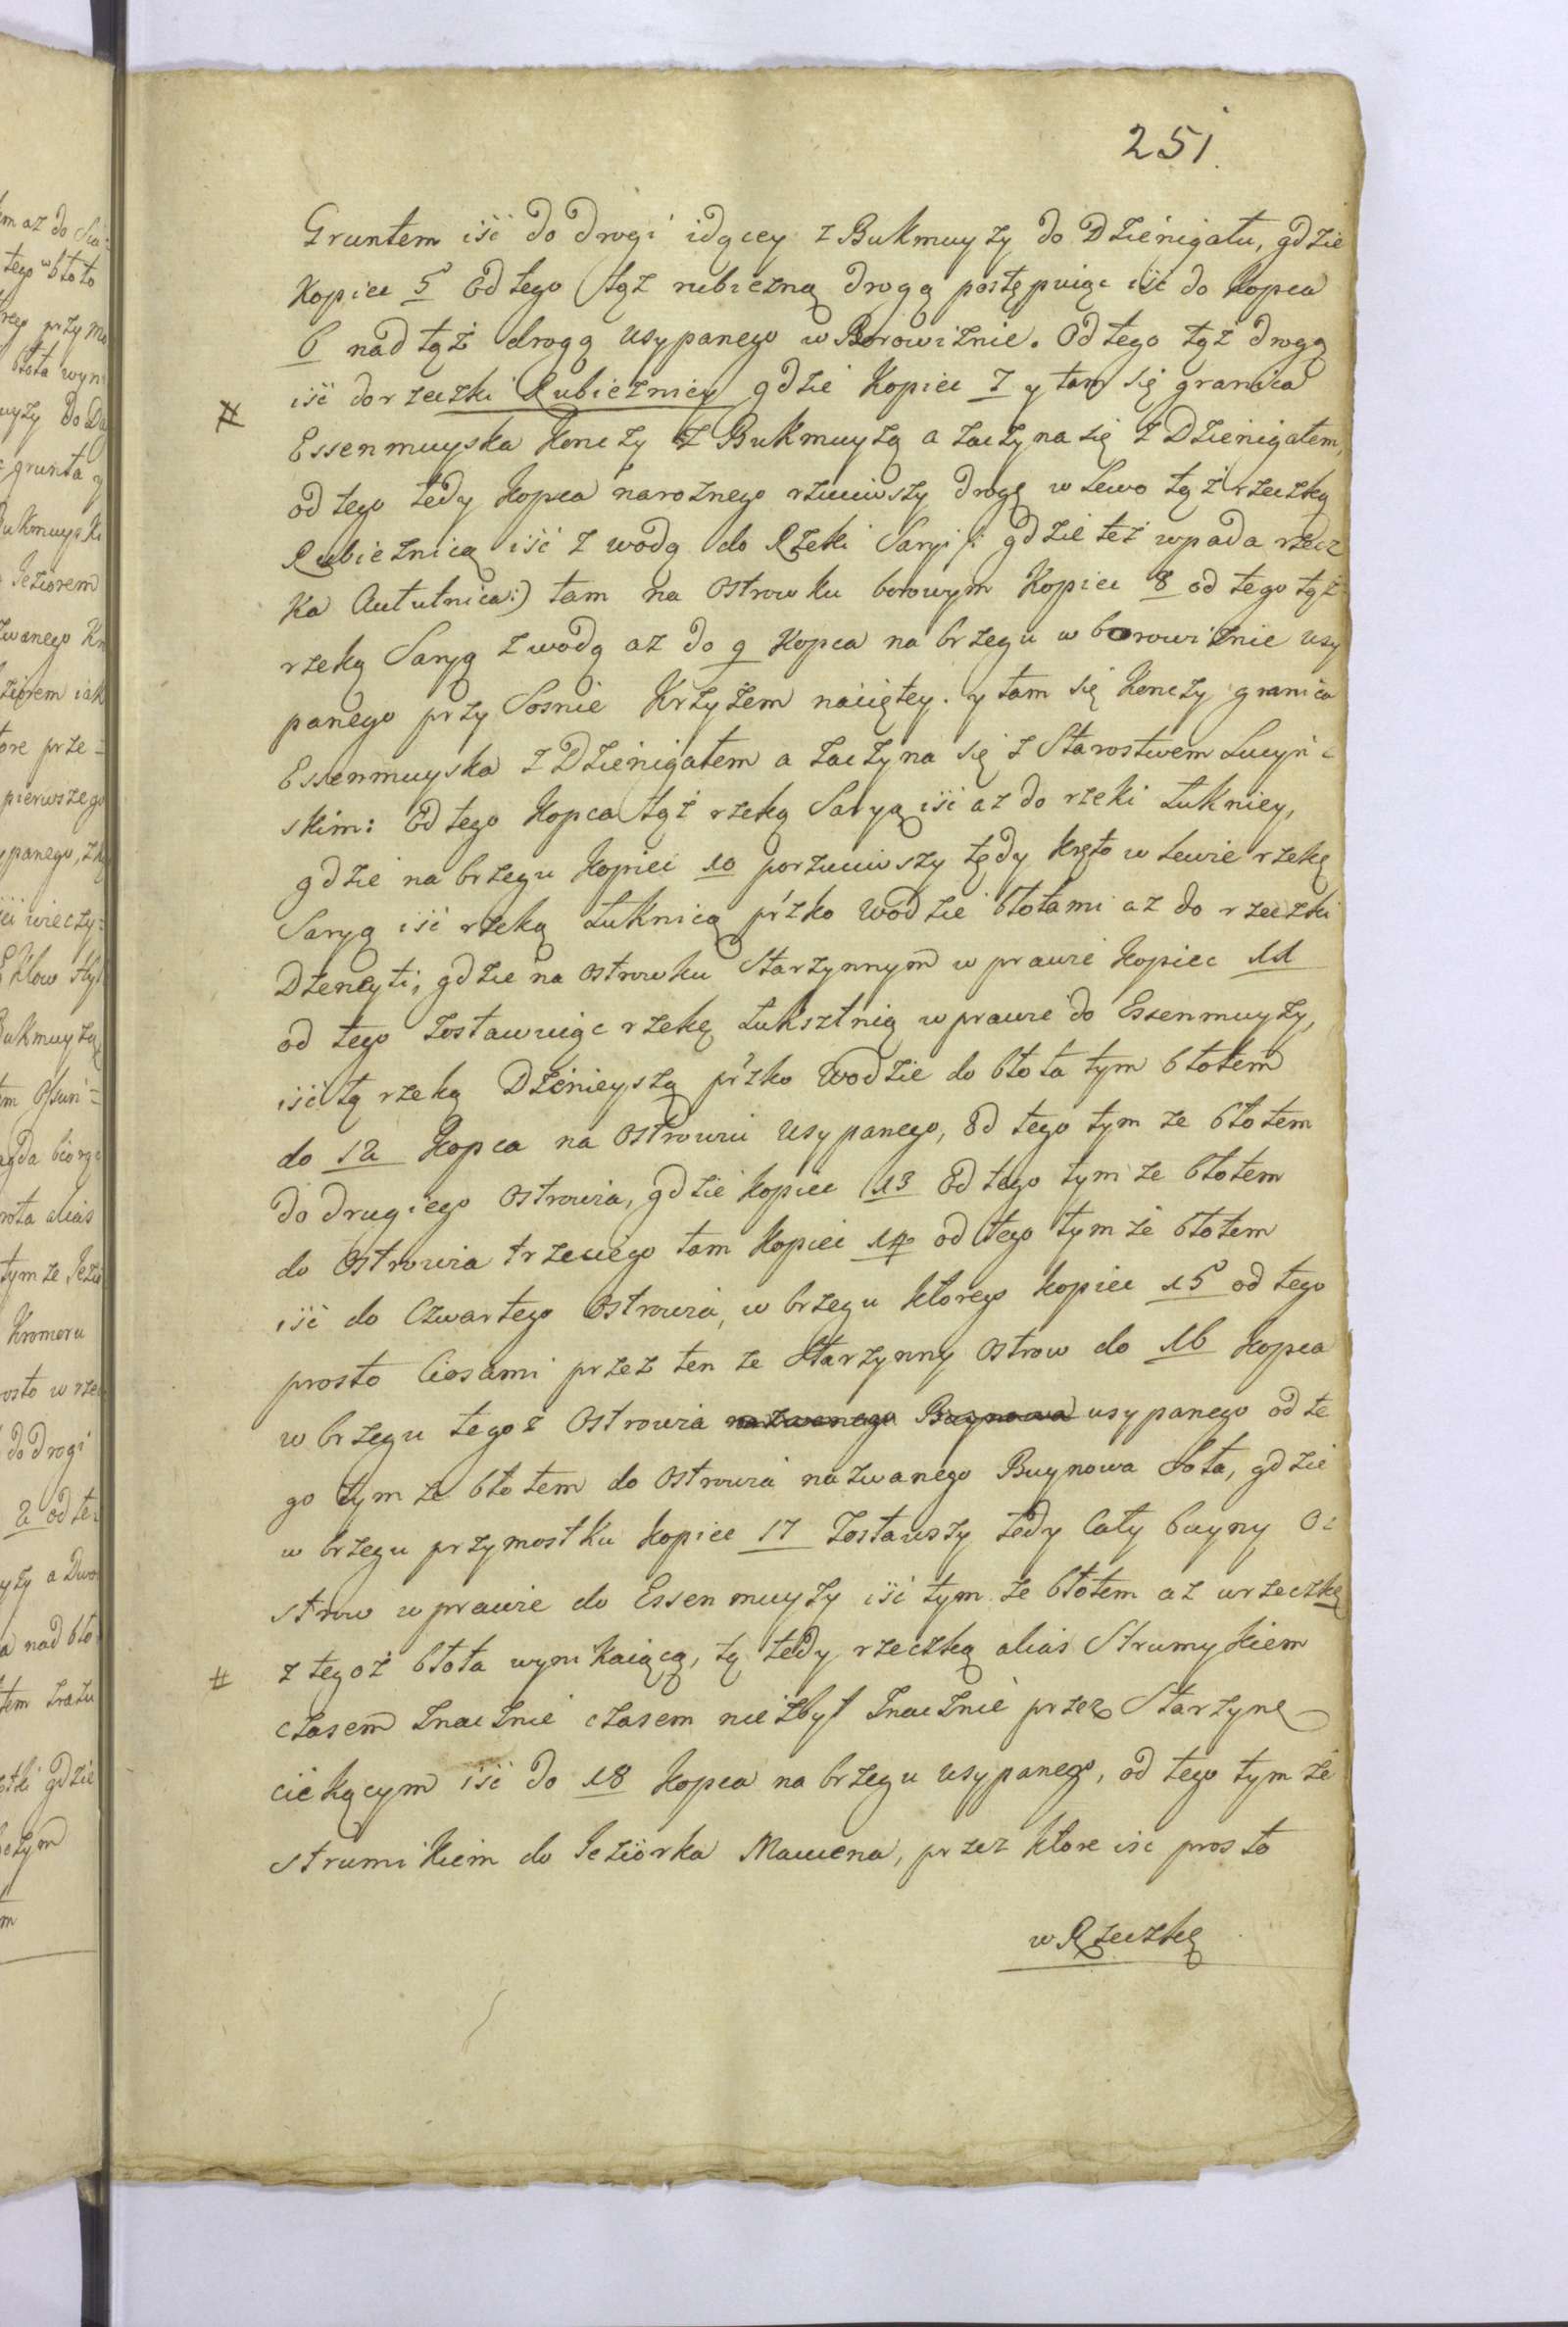 251.
Gruntem iść do drogi idącey z Bukmuyży do Dzienigału, gdzie
Kopiec 5 Od tego tąż rubieżną drogą postępuiąc iść do Kopca
6 nad tąż drogą usypanego w Borowiźnie. Od tego tąż drogą
# iść do rzeczki Rubieżnicy gdzie Kopiec 7 y tam się granica
Essenmuyska Konczy z Bukmuyżą a zaczyna się z Dzienigałem,
od tego tedy Kopca narożnego rzuciwszy drogę w Lewo tąż rzeczką
Rubieżnicą iść z wodą do Rzeki Saryi /: gdzie też wpada rzecz
ka Aututnica:) tam na Ostrowku borowym Kopiec 8 od tego tąż
rzeką Saryą z wodą az do 9 Kopca na brzegu w borowiźnie usy
panego przy Sosnie Krzyżem naciętey. y tam się Konczy granica
Essenmuyska z Dzienigałem a zaczyna się z Starostwem Lucyń=
skim: Od tego Kopca tąż rzeką Saryą iść az do rzeki Łukniey,
gdzie na brzegu Kopiec 10 porzuciwszy tędy kręto w Lewie rzekę
Saryą iść rzeką Łuknicą przko wodzie błotami az do rzeczki
gdzie na ostrowku Starzynnym w prawie Kopiec 11
od tego zostawuiąc rzekę w prawie do Essenmuyży,
iść tą rzeką przko Wodzie do błota tym błotem
do 12 Kopca na Ostrowiu usypanego, Od tego tym ze błotem
do drugiego Ostrowia, gdzie kopiec 13 Od tego tym ze błotem
do Ostrowia trzeciego tam Kopiec 14 od tego tym że błotem
iść do Czwartego Ostrowia, w brzegu ktorego kopiec 15 od tego
prosto Ciosami przez ten ze Starzynny Ostrow do 16 Kopca
w brzegu tegoż Ostrowia nazwanego Buynowa usypanego od te
go tym ze błotem do Ostrowia nazwanego Buynowa Soła, gdzie
w brzegu przy mostku kopiec 17 Zostawszy tedy Cały buyny O=
strow w prawie do Essenmuyży iść tym ze błotem az w rzeczkę
# z tegoż błota wynikaiącą, tą tedy rzeczką alias Strumykiem
czasem znacznie czasem nie zbyt znacznie przez Starzynę
ciekącym iść do 18 Kopca na brzegu usypanego, od tego tym że
strumikiem do Jeziorka Mawena, przez ktore isc prosto
w Rzeczkę